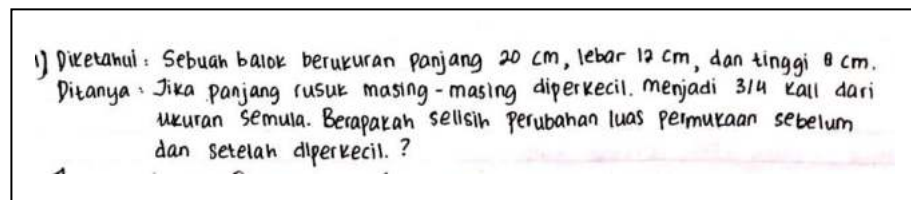 1) Diketahui : Sebuah balok berukuran panjang 20 cm, lebar 12 cm, dan tinggi 8 cm.
Ditanya : Jika panjang rusuk masing-masing diperkecil. menjadi 3/4 kali dari
ukuran semula. Berapakah selisih perubahan luas permukaan sebelum
dan setelah diperkecil. ?